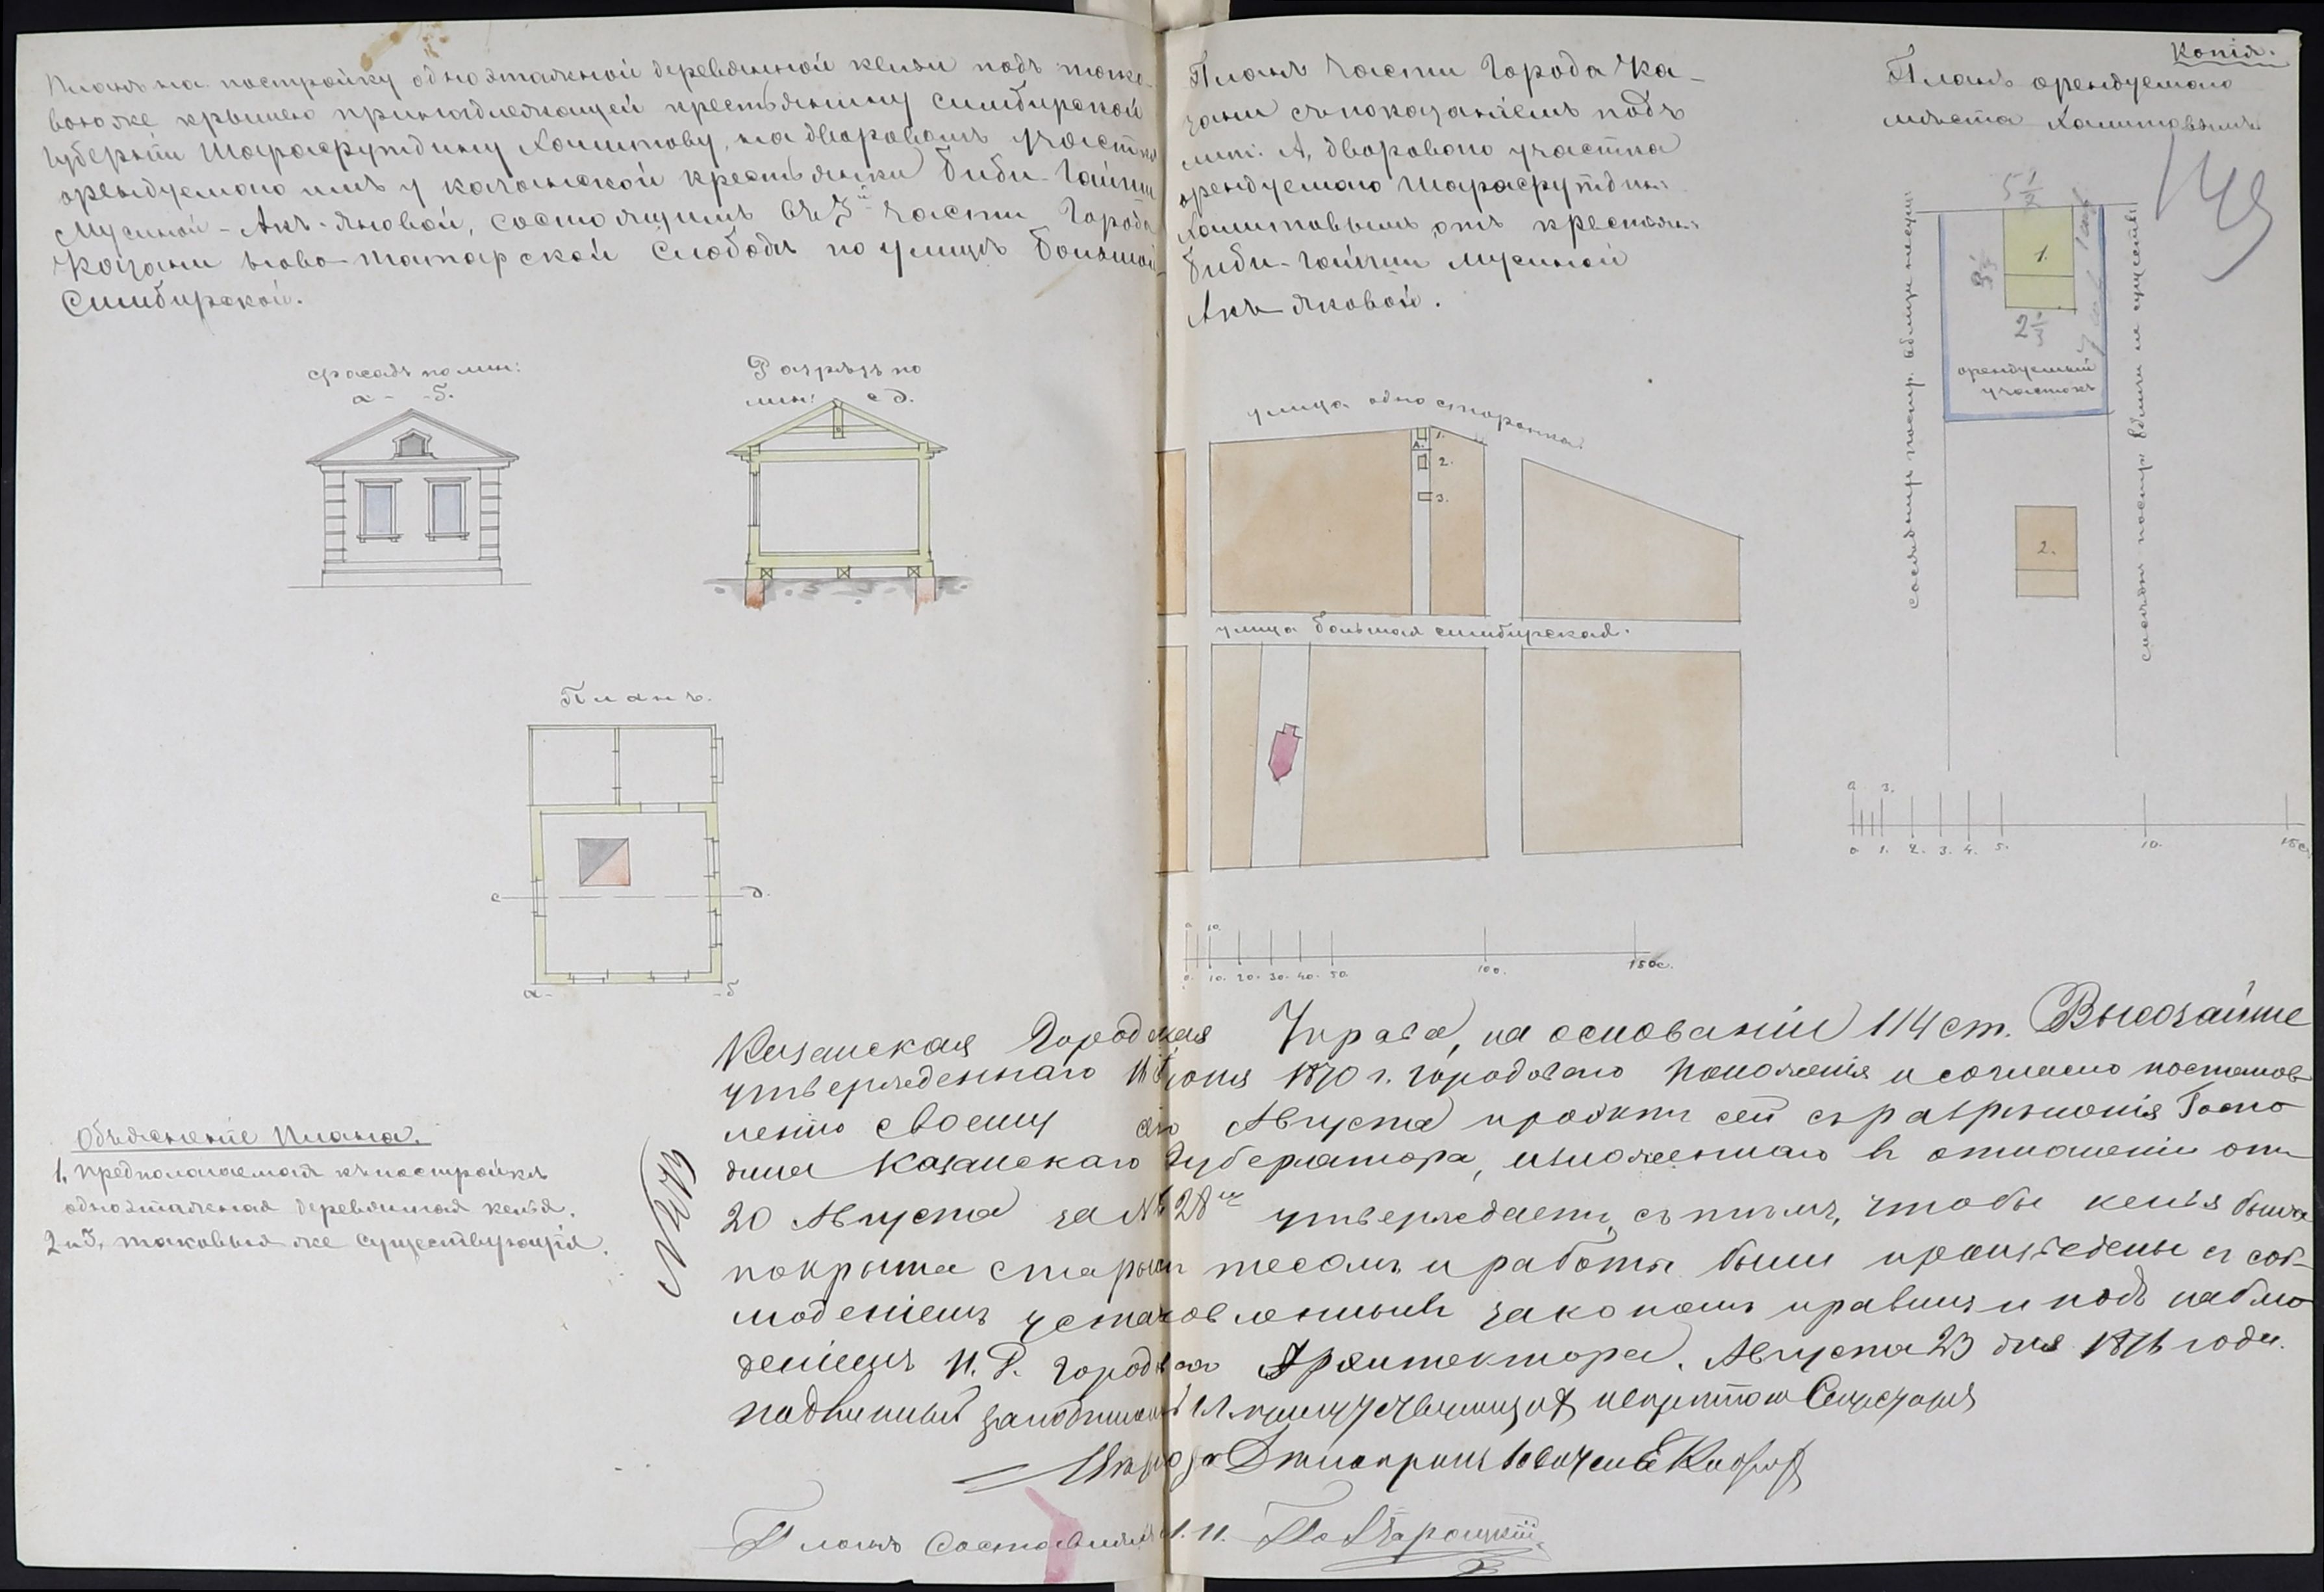 Планъ на постройку одноэтажной деревянной кельи подъ тако-
вою же крышею принадлежащей крестьянину Симбирской
Губерніи Шарафутдину Хамитову, на дворовомъ участкѣ
арендуемаго имъ у казанской крестьянки Биби-Гайши
Мусиной-Акъ-яковой, состоящимъ въ 5й части Города
Казани Ново-татарской Слободѣ по улицѣ Большой
Симбирской.
Фасадъ по лин:
а - - б.
Разрѣзъ по
лин: с д.
Планъ.
с
д.
а-
-б
Объясненіе Плана.
1, предполагаемая къ постройкѣ
одноэтажная деревянная келья.
2 и 3, таковыя же существующія.
Копія.
Планъ части Города Ка-
зани съ показаніемъ подъ
лит: А, дворового участка
арендуемаго Шарафутдин:
Хамитовымъ отъ крестьян:
Биби-Гайши Мусиной
Акъ-яковой.
улица односторонка.
1.
А.
2.
3.
улица большая симбирская.
0. 10.
0. 10. 20. 30. 40. 50. 100. 150с.
Планъ арендуемаго
мѣста Хамитовымъ
5 1/2
1.
2 1/3
арендуемый
участокъ
2.
0. 3.
0 1. 2. 3. 4. 5. 10. 15с.
Казанская Городская Управа, на основаніи 114 ст. Высочайше
утвержденнаго 16 Іюня 1870 г. Городоваго положенія и согласно постанов-
ленію своему Августа проэктъ сей съ разрѣшенія Госпо-
дина Казанскаго Губернатора, изложеннаго въ отношеніи отъ
20 Августа за № утверждаетъ, съ тѣмъ, чтобы келья была
покрыта старымъ тесомъ и работы были произведены съ соб-
люденіемъ установленныхъ закономъ правилъ и подъ наблю-
деніемъ И. Д. Городскаго Архитектора. Августа 23 дня 1876 года.
Планъ Составлялъ